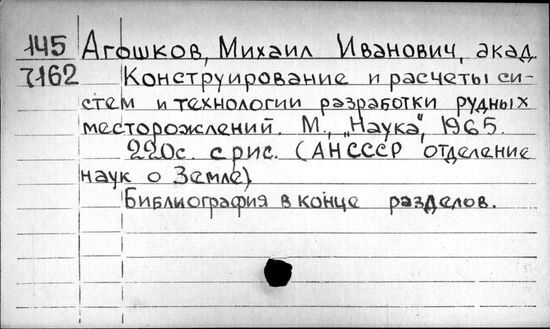 145 Агошков, Михаил Иванович, акад.
7162 Конструирование и расчеты си-
стем и технологии разработки рудных
месторождений. М., „Наука", 1965.
220с. с рис. (АН СССР отделение
наук о Земле)
Библиография в конце разделов.